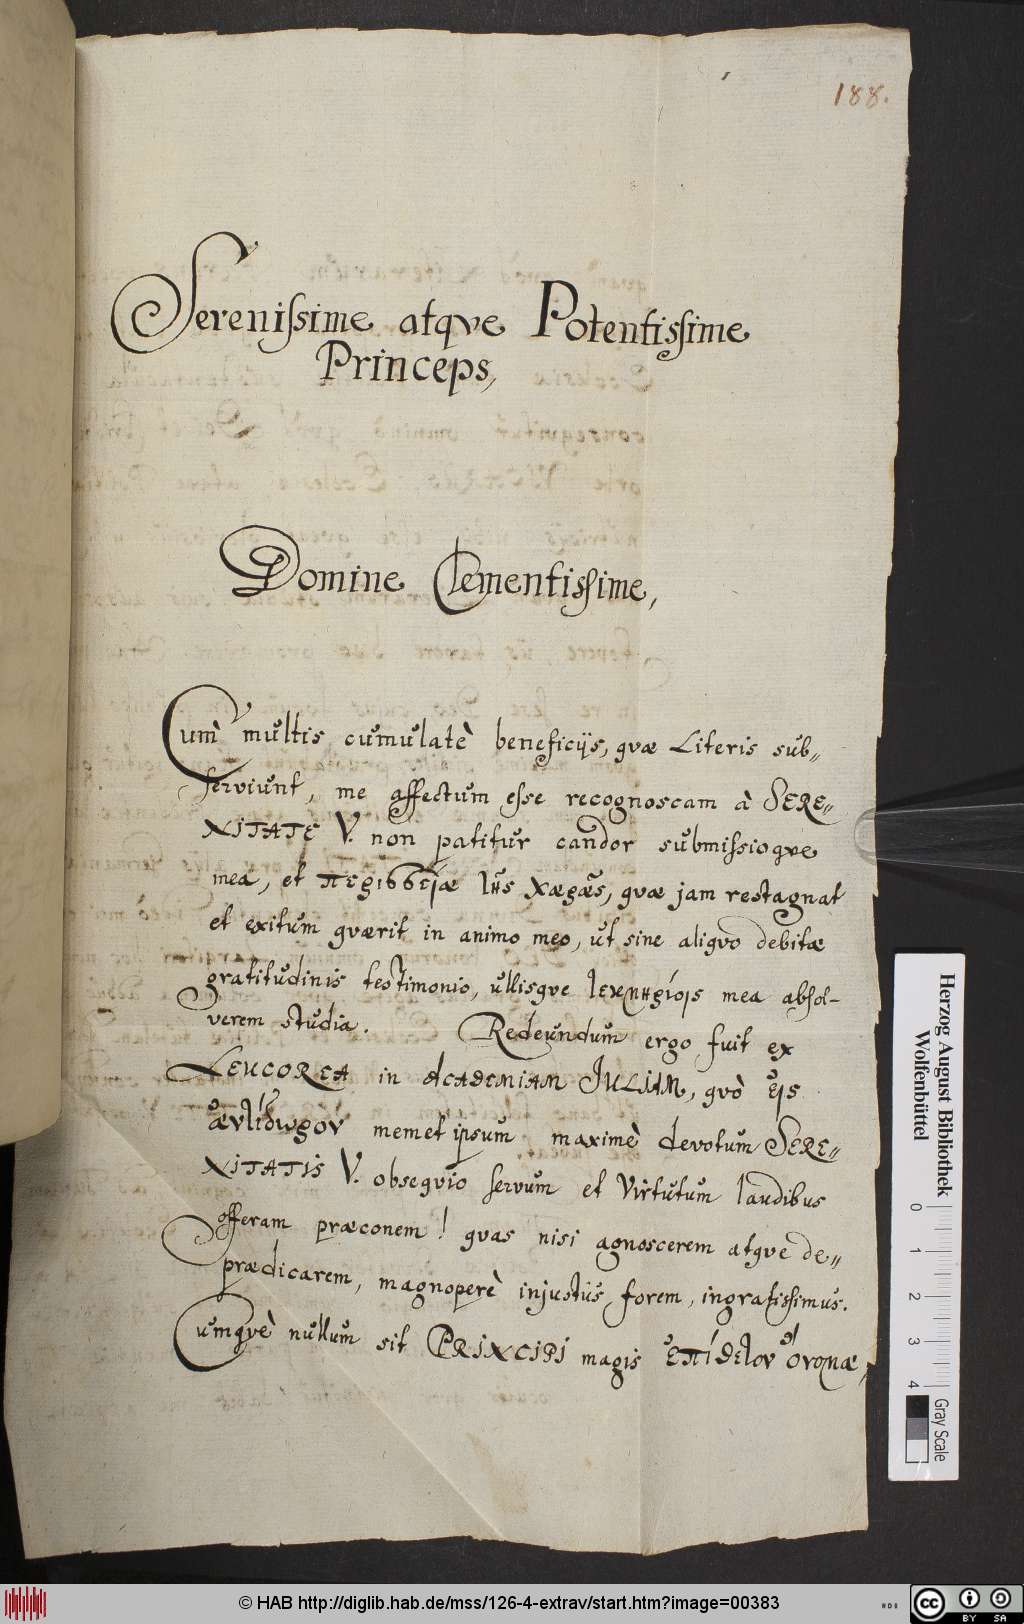 188.
Serenissime atqve Potentissime
Princeps,
Domine Clementissime,
Cum multis cumulatè beneficijs, qvæ Literis sub=
serviunt, me affectum esse recognoscam à SERE=
NITATE V. non patitur candor submissioqve
mea, et περισσεία τῆς χαρᾶς, qvæ jam restagnat
et exitum qværit in animo meo, ut sine aliqvo debitæ
gratitudinis testimonio, ullisqve mea absol-
verem studia. Redeundum ergo fuit ex
LEUCOREA in ACADEMIAM JULIAM, qvò εἰς
ἀντίδωρον memet ipsum maximè devotum SERE=
NITATIS V. obseqvio servum et Virtutum laudibus
offeram præconem! qvas nisi agnoscerem atqve de=
prædicarem, magnoperè injustus forem, ingratissimus.
Cumqvè nullum sit PRINCIPI magis ἐπίδηλον ὄνομα,
Herzog August Bibliothek
Wolfenbüttel
0 1 2 3 4
Gray Scale
© HAB http://diglib.hab.de/mss/126-4-extrav/start.htm?image=00383
cc BY SA